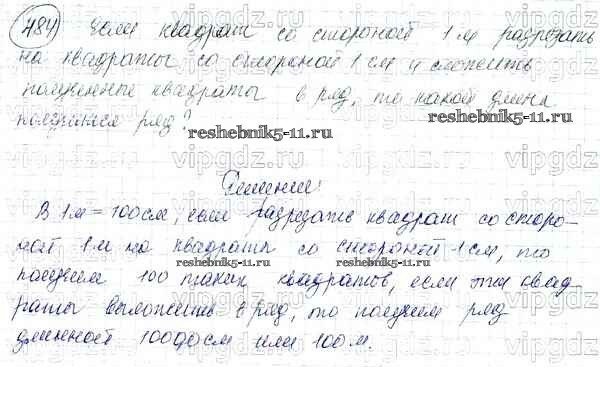 484) Если квадрат со стороной 1 м разрезать
на квадраты со стороной 1 см и сложить
полученные квадраты в ряд, то какой длины
получится ряд?
reshebnik5-11.ru
Решение:
В 1м = 100см, если разрезать квадрат со сторо-
ной 1м на квадраты со стороной 1см, то
получим 100 таких квадратов, если эти квад
раты выложить в ряд, то получим ряд
длинной 10000см или 100м.
reshebnik5-11.ru
reshebnik5-11.ru
vipgdz.ru